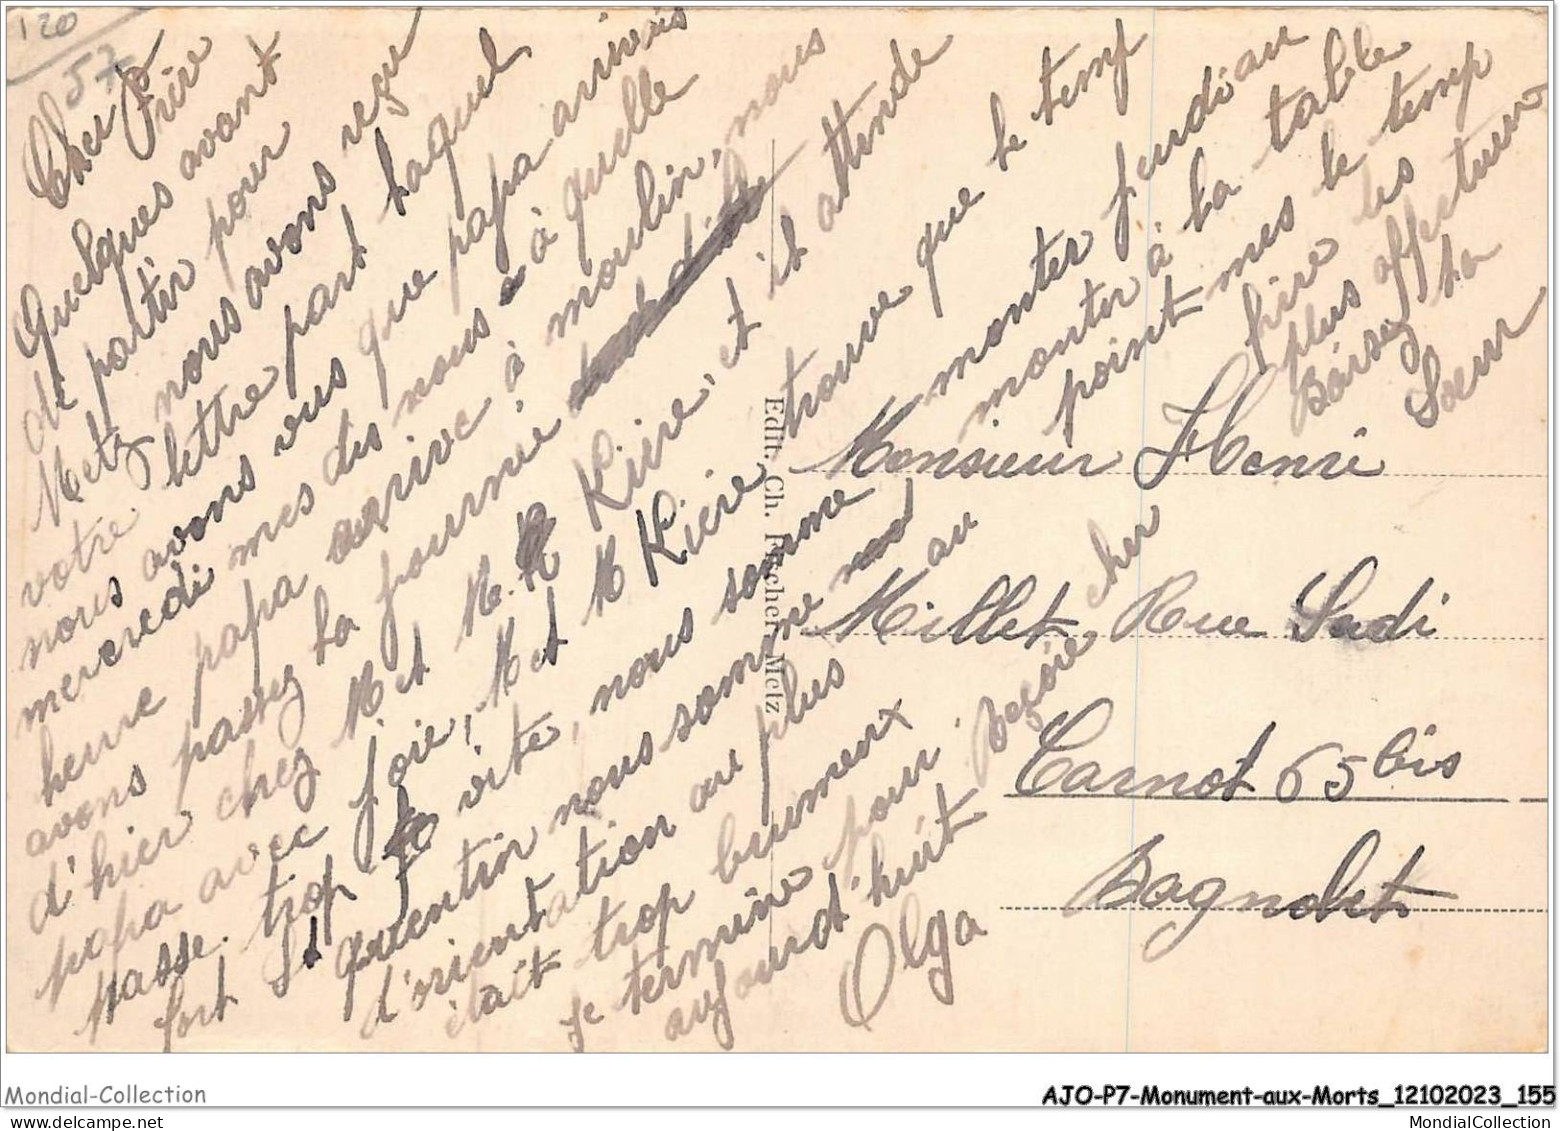 120
57
Cher Frère
Quelques avant
de partir pour
Metz nous avons reçu
votre lettre part laquel
nous avons vus que papa arrivais
mercredi mes dis nous à quelle
heure papa arrive à moulin, nous
avons passez la journie
d'hier chez M et M. Kiire, et it attende
papa avec joie, M et M Kiere trouve que le temp
passe trop vite, nous somme monter jeudi au
fort St quentin nous somme monter à la table
d'orientation au plus point mes le temp
était trop brumeux au
je termine pour aujourd'huit Reçoire cher frire les
plus affectueux
Baisez ta
Soeur
Olga
Monsieur Henri
Millet Rue Sadi
Carnot 65 bis
Bagnolet
Edit. Ch. Fischer Metz
Mondial-Collection
AJO-P7-Monument-aux-Morts_12102023_155
MondialCollection